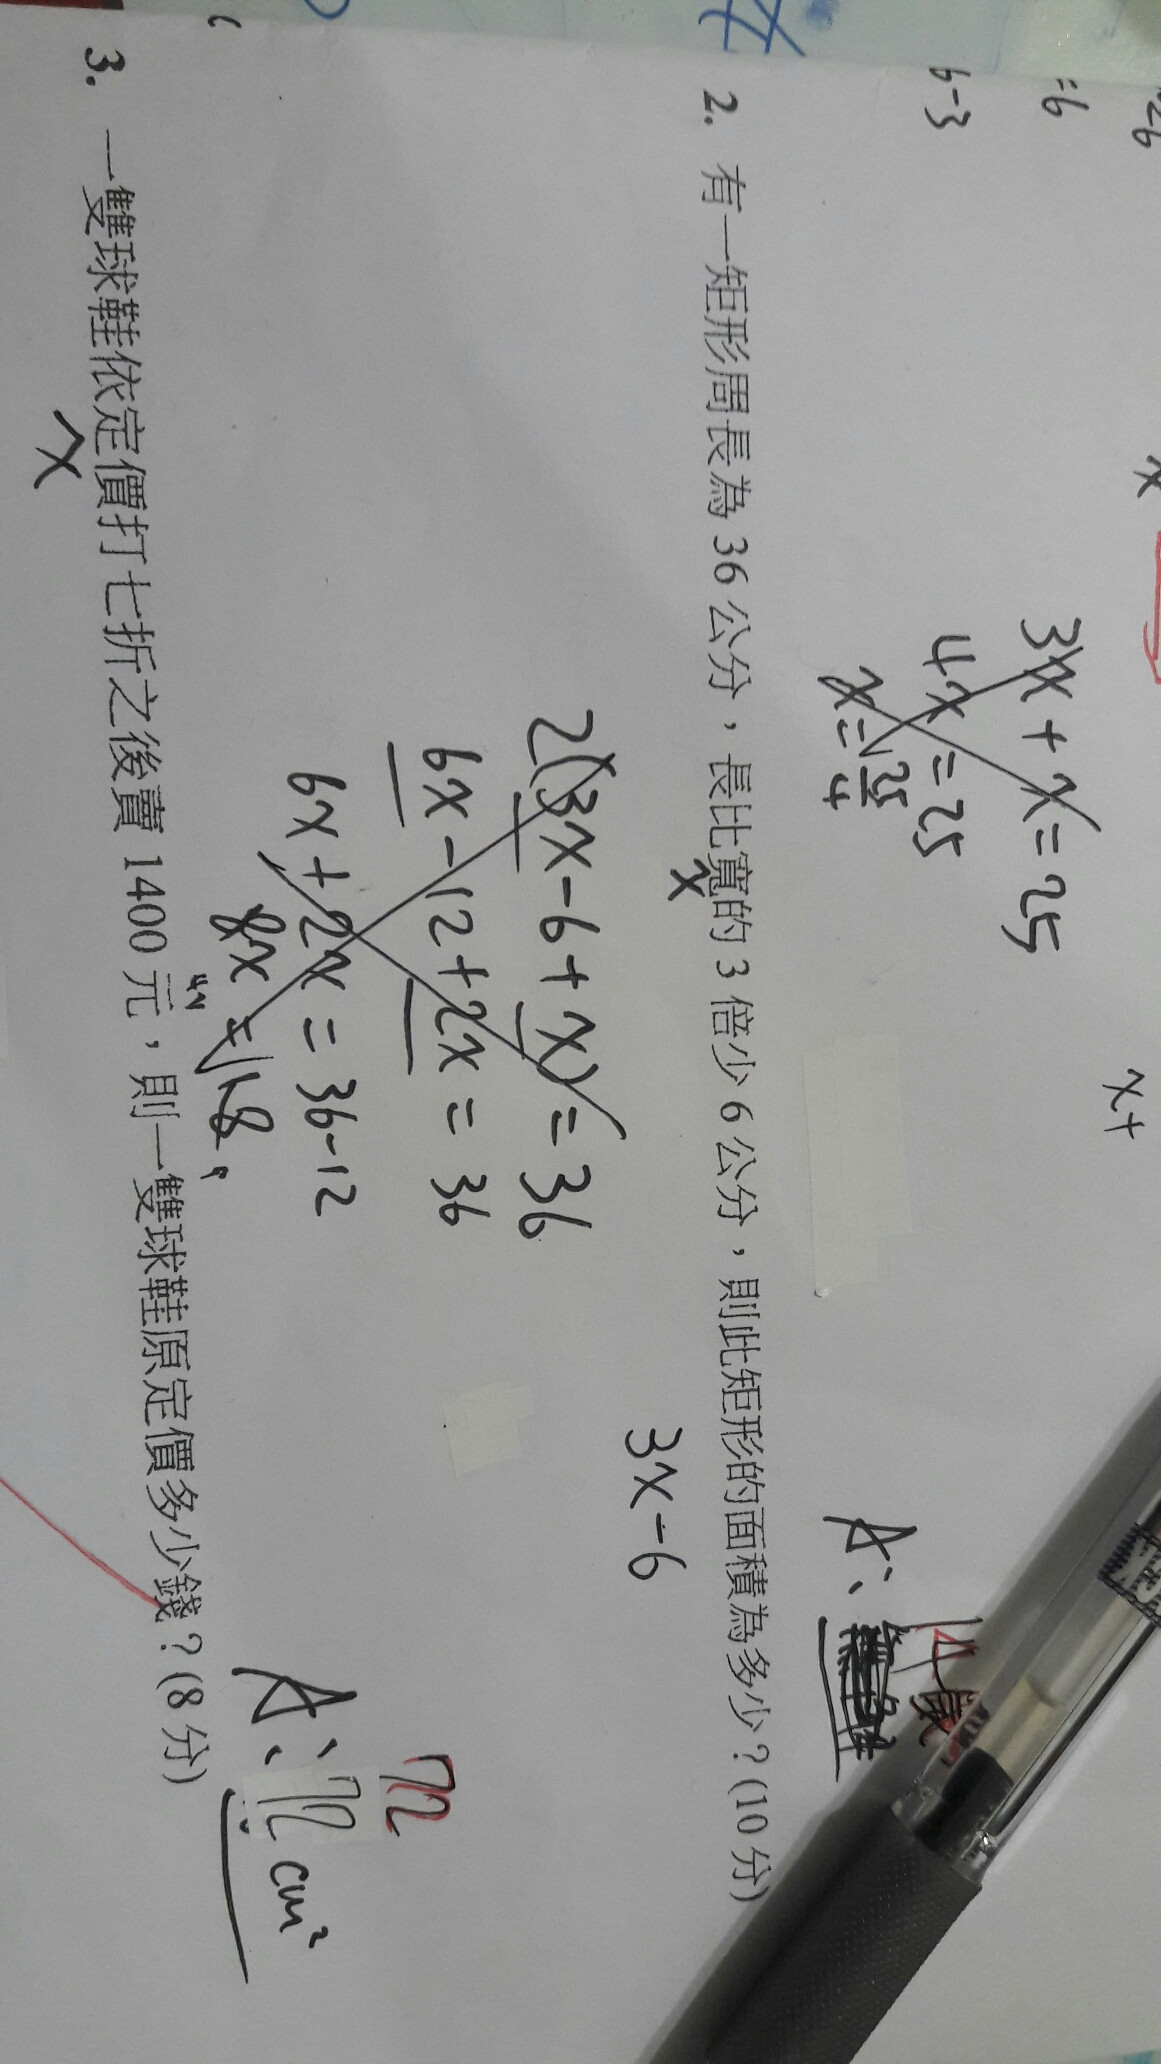 =6
6-3
x
x+
3x+x=25
4x=25
x=25/4
A:
2. 有一矩形周長為 36 公分，長比寬的 3 倍少 6 公分，則此矩形的面積為多少？(10 分)
x
3x-6
2(3x-6+x)=36
6x-12+2x=36
6x+2x=36-12
8x=
72
A:72 cm²
3. 一雙球鞋依定價打七折之後賣 1400 元，則一雙球鞋原定價多少錢？(8 分)
x